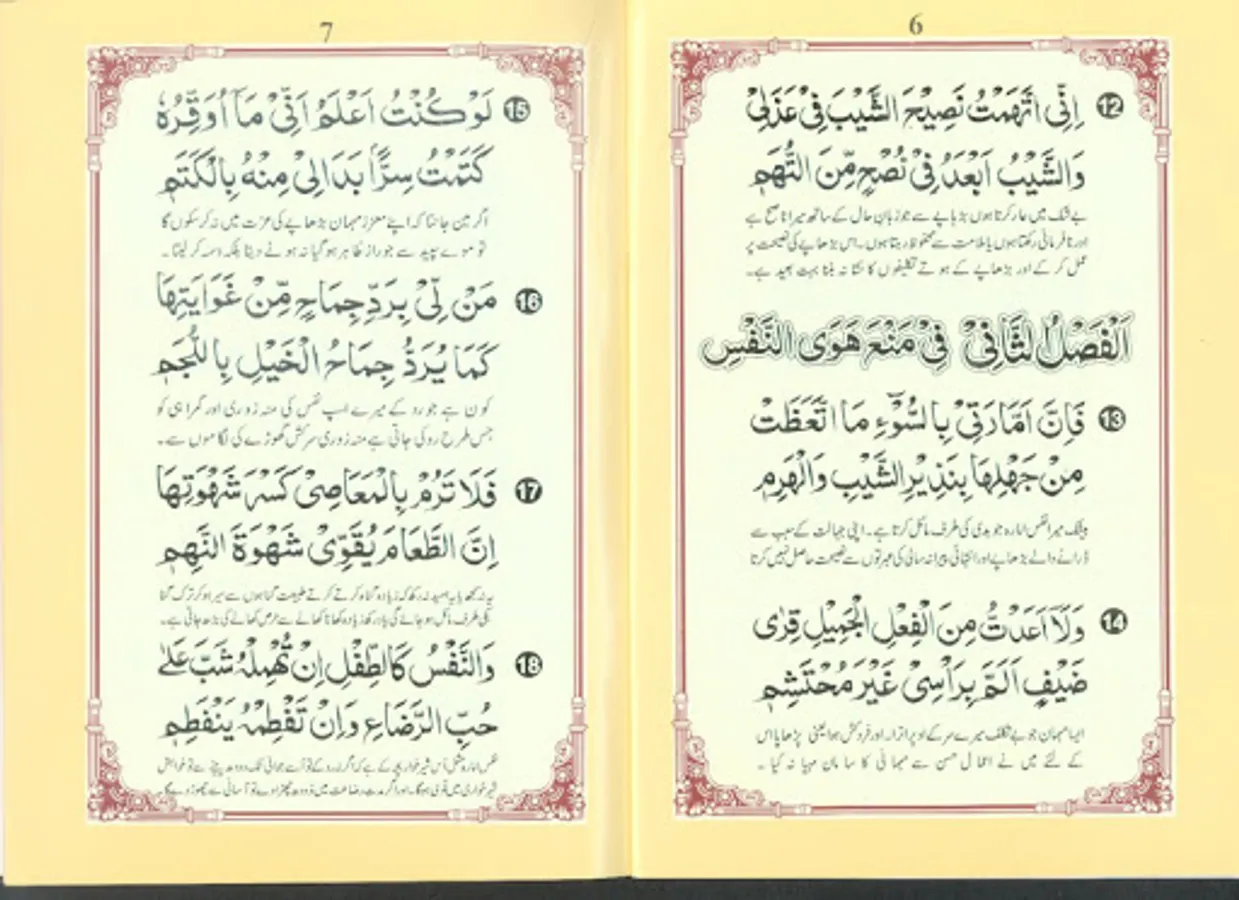 6
⑫ اِنِّی اتَّهَمْتُ نَصِیْحَ الشَّیْبَ فِیْ عَذَلِیْ
وَالشَّیْبُ اَبْعَدُ فِیْ نُصْحٍ مِّنَ التُّهَمِ
بے شک میں عار کرتا ہوں بڑہاپے سے جو زبان حال کے ساتھ میرا ناصح ہے
اور نافرمانی رکھتا ہوں یا ملامت سے محفوظ رہتا ہوں۔ اس بڑھاپے کی نصیحت پر
عمل کر کے اور بڑھاپے کے ہوتے تکلیفوں کا نشانہ بننا بہت بعید ہے۔
اَلْفَصْلُ الثَّانِیْ فِیْ مَنْعِ هَوَی النَّفْسِ
⑬ فَاِنَّ اَمَّارَتِیْ بِالسُّوْٓءِ مَا اتَّعَظَتْ
مِنْ جَهْلِهَا بِنَذِیْرِ الشَّیْبِ وَالْهَرَمِ
بیشک میرا نفس امارہ جو بدی کی طرف مائل کرتا ہے۔ اپنی جہالت کے سبب سے
ڈرانے والے بڑھاپے اور انتہائی پیرانہ سالی کی عبرتوں سے نصیحت حاصل نہیں کرتا
⑭ وَلَآ اَعَدَّتْ مِنَ الْفِعْلِ الْجَمِیْلِ قِرٰی
ضَیْفٍ اَلَمَّ بِرَاْسِیْ غَیْرَ مُحْتَشِمِ
ایسا مہمان جو بے تکلف میرے سر کے اوپر اترا اور فروکش ہوا یعنی بڑھاپا اس
کے لئے میں نے اعمال حسن سے مہمانی کا سامان مہیا نہ کیا ۔
7
⑮ لَوْ کُنْتُ اَعْلَمُ اَنِّیْ مَآ اُوَقِّرُهٗ
کَتَمْتُ سِرًّا بَدَا لِیْ مِنْهُ بِالْکَتَمِ
اگر میں جانتا کہ اپنے معزز مہمان بڑھاپے کی عزت میں نہ کرسکوں گا
تو موے سپید سے جو راز ظاہر ہو گیا نہ ہونے دیتا بلکہ وسمہ کر لیتا ۔
⑯ مَنْ لِّیْ بِرَدِّ جِمَاحٍ مِّنْ غَوَایَتِهَا
کَمَا یُرَدُّ جِمَاحُ الْخَیْلِ بِاللُّجَمِ
کون ہے جو روکے میرے اسپ نفس کی منہ زوری اور گمراہی کو
جس طرح روکی جاتی ہے منہ زوری سرکش گھوڑے کی لگاموں سے ۔
⑰ فَلَا تَرُمْ بِالْمَعَاصِیْ کَسْرَ شَهْوَتِهَا
اِنَّ الطَّعَامَ یُقَوِّیْ شَهْوَةَ النَّهِمِ
یہ نہ سمجھ یا یہ امید نہ رکھ کہ زیادہ گناہ کرتے کرتے طبیعت گناہوں سے سیر ہو کر ترک گناہ
کی طرف مائل ہو جائے گی یاد رکھ زیادہ کھانا کھانے سے حرص کھانے کی بڑھ جاتی ہے۔
⑱ وَالنَّفْسُ کَالطِّفْلِ اِنْ تُهْمِلْهُ شَبَّ عَلٰی
حُبِّ الرَّضَاعِ وَاِنْ تَفْطِمْهُ یَنْفَطِمِ